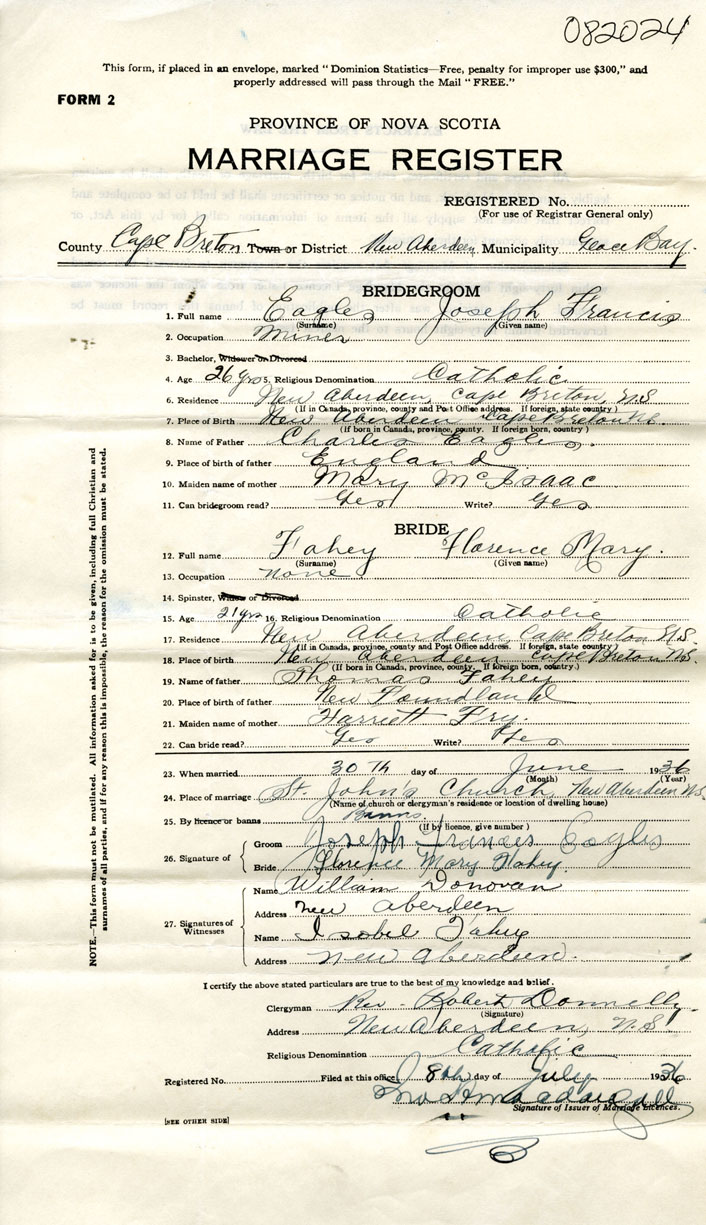 082024
This form, if placed in an envelope, marked "Dominion Statistics—Free, penalty for improper use $300," and
properly addressed will pass through the Mail "FREE."
FORM 2
PROVINCE OF NOVA SCOTIA
MARRIAGE REGISTER
REGISTERED No.
(For use of Registrar General only)
County Cape Breton Town or District New Aberdeen Municipality Glace Bay.
BRIDEGROOM
1. Full name Eagles Joseph Francis
(Surname) (Given name)
2. Occupation Miner
3. Bachelor, Widower or Divorced
4. Age 26 yrs 5. Religious Denomination Catholic
6. Residence New Aberdeen, Cape Breton, N.S
(If in Canada, province, county and Post Office address. If foreign, state country)
7. Place of Birth New Aberdeen Cape Breton N.S.
(If born in Canada, province, county. If foreign born, country)
8. Name of Father Charles Eagles
9. Place of birth of father England
10. Maiden name of mother Mary McIsaac
11. Can bridegroom read? Yes Write? Yes
BRIDE
12. Full name Fahey Florence Mary.
(Surname) (Given name)
13. Occupation none
14. Spinster, Widow or Divorced
15. Age 21 yrs 16. Religious Denomination Catholic
17. Residence New Aberdeen, Cape Breton N.S.
(If in Canada, province, county and Post Office address. If foreign, state country)
18. Place of birth New Aberdeen Cape Breton N.S.
(If born in Canada, province, county. If foreign born, country.)
19. Name of father Thomas Fahey
20. Place of birth of father New Foundland
21. Maiden name of mother Harriett Fry.
22. Can bride read? Yes Write? Yes
23. When married 30 Th day of June 1936
(Month) (Year)
24. Place of marriage St. John's Church, New Aberdeen N.S.
(Name of church or clergyman's residence or location of dwelling house)
25. By licence or banns Banns
(If by licence, give number)
26. Signature of Groom Joseph Frances Eagles
Bride Florence Mary Fahey.
27. Signatures of Witnesses
Name William Donovan
Address New Aberdeen
Name Isobel Fahey
Address New Aberdeen.
I certify the above stated particulars are true to the best of my knowledge and belief.
Clergyman Rev. Robert Donnelly.
(Signature)
Address New Aberdeen, N.S
Religious Denomination Catholic
Registered No. Filed at this office 8th day of July 1936
Signature of Issuer of Marriage Licences.
[SEE OTHER SIDE]
NOTE.—This form must not be mutilated. All information asked for is to be given, including full Christian and
surnames of all parties, and if for any reason this is impossible, the reason for the omission must be stated.